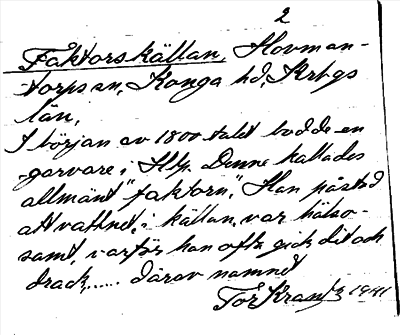 2
Faktorskällan, Hovman-
torps sn, Konga hd, Krbgs
län,
I början av 1800 talet bodde en
garvare i Htp. Denne kallades
allmänt "faktorn". Han påstod
att vattnet, i källan, var hälso-
samt, varför han ofta gick dit och
drack,..... därav namnet
Tor Krantz 1941